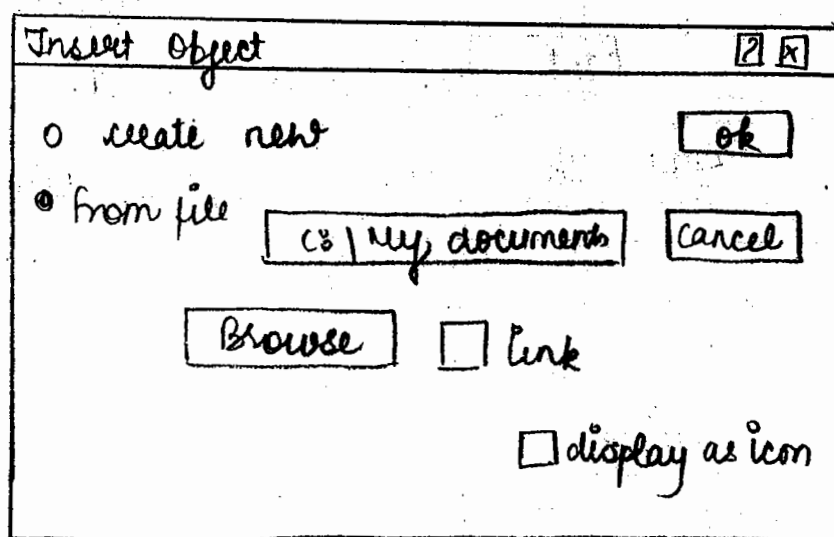 Insert Object ? x
o create new ok
from file C:\ My documents cancel
Browse link
display as icon